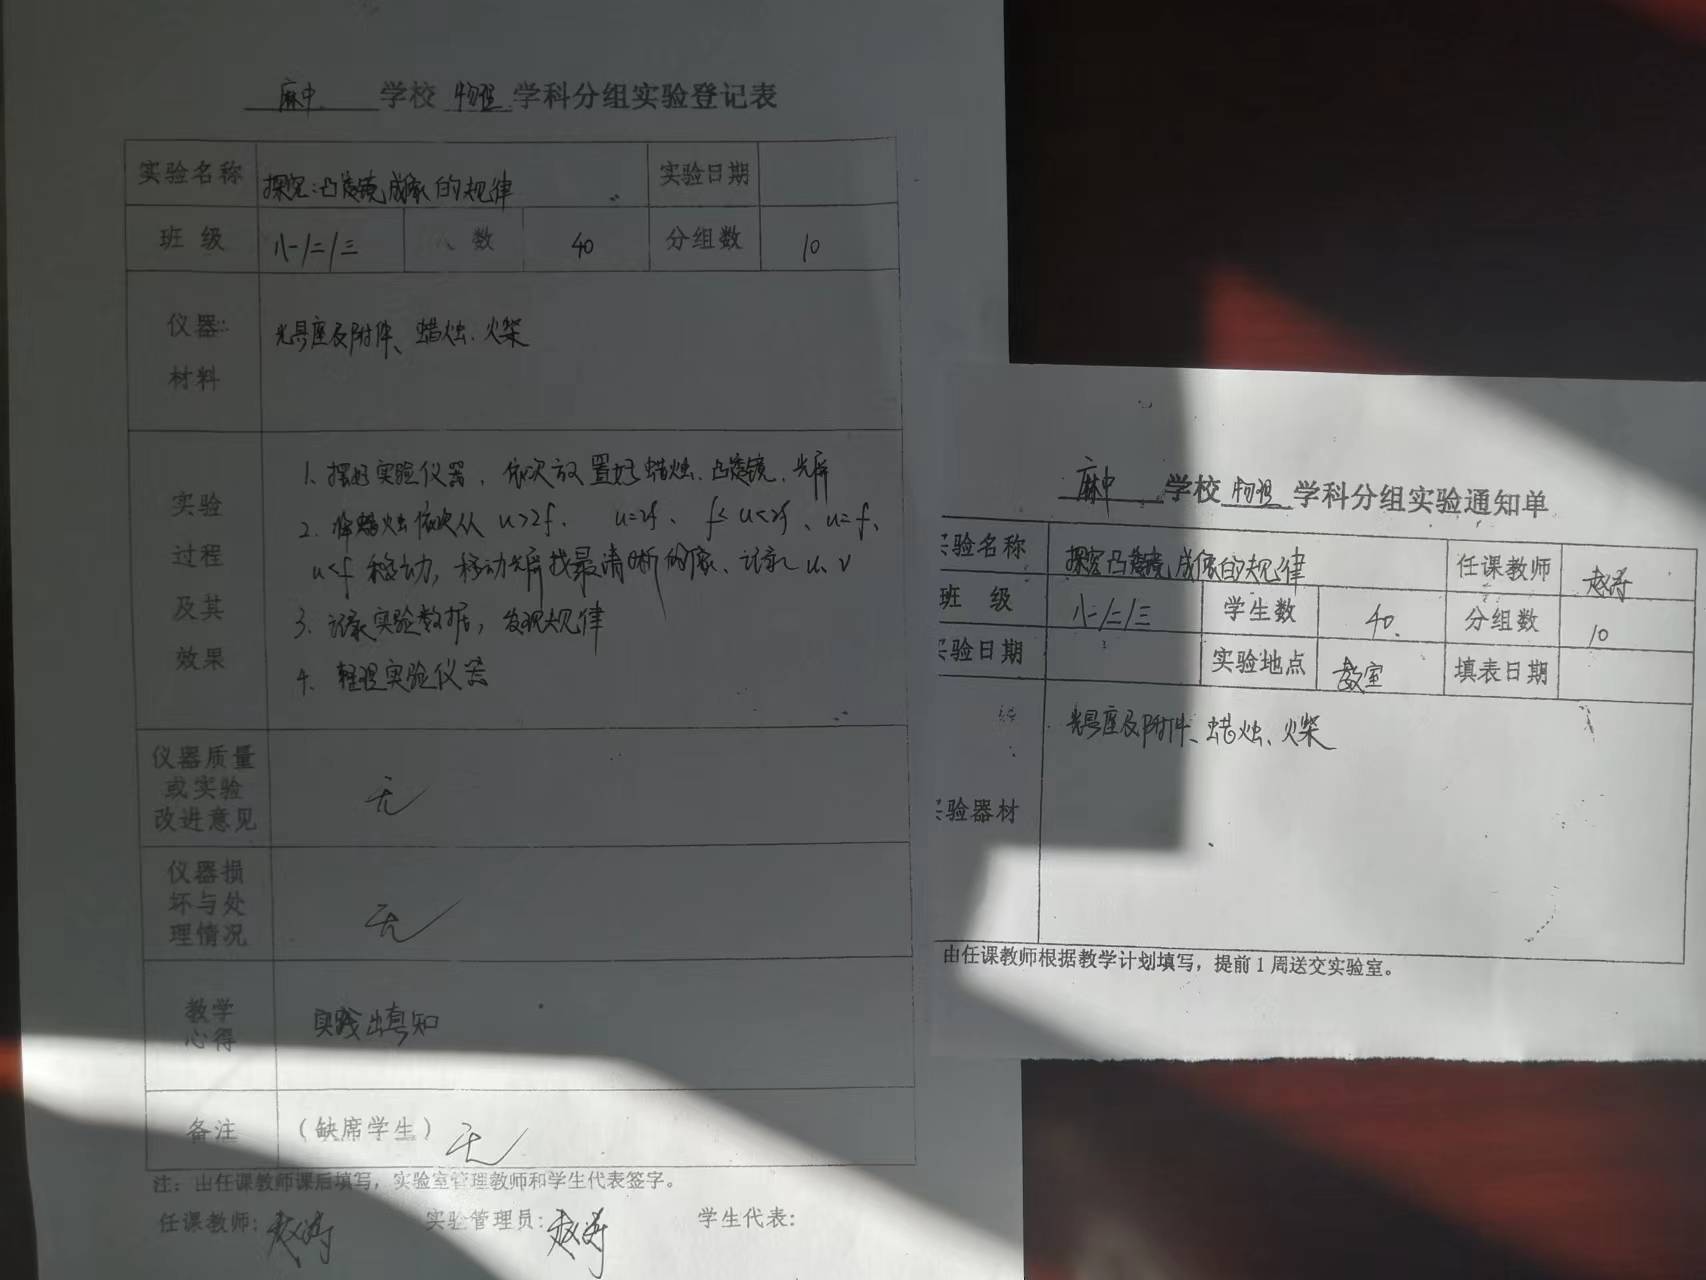 麻中 学校 物理 学科分组实验登记表
实验名称 探究:凸透镜成像的规律 实验日期
班 级 八一/二/三 人 数 40 分组数 10
仪器
材料
光具座及附件、蜡烛、火柴
实验
过程
及其
效果
1. 摆好实验仪器,依次放置好蜡烛、凸透镜、光屏
2. 将蜡烛依次从 u>2f、 u=2f、 f<u<2f、u=f、
u<f 移动,移动光屏找最清晰的像、记录 u、v
3. 记录实验数据,发现规律
4. 整理实验仪器
仪器质量
或实验
改进意见
无
仪器损
坏与处
理情况
无
教学
心得
实践出真知
备注 (缺席学生) 无
注:由任课教师课后填写,实验室管理教师和学生代表签字。
任课教师: 赵涛 实验管理员: 赵涛 学生代表:
麻中 学校 物理 学科分组实验通知单
实验名称 探究凸透镜成像的规律 任课教师 赵涛
班 级 八一/二/三 学生数 40 分组数 10
实验日期 实验地点 教室 填表日期
实验器材
光具座及附件、蜡烛、火柴
由任课教师根据教学计划填写,提前1周送交实验室。